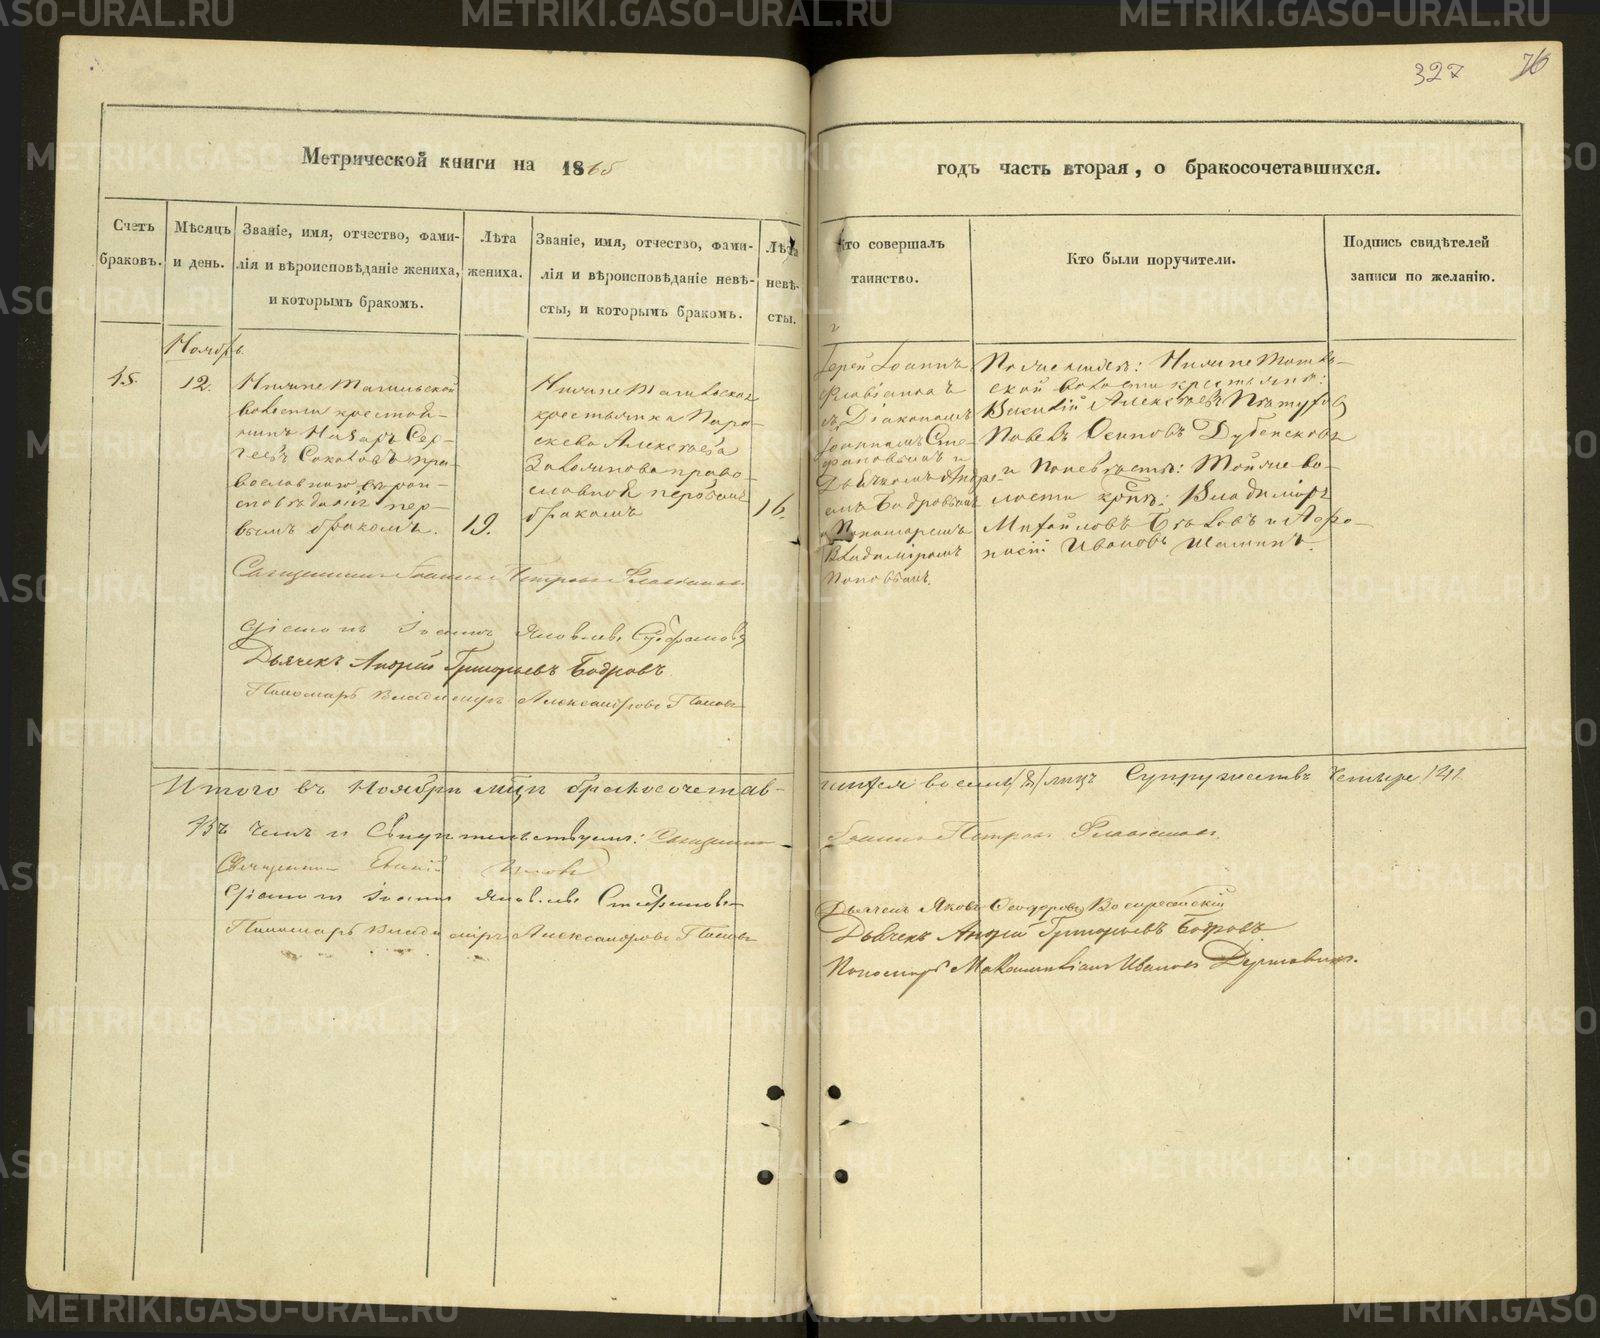 327 76
Метрической книги на 1865
годъ часть вторая, о бракосочетавшихся.
Счетъ браковъ.
Мѣсяцъ и день.
Званіе, имя, отчество, фами-
лія и вѣроисповѣданіе жениха,
и которымъ бракомъ.
Лѣта
жениха.
Званіе, имя, отчество, фами-
лія и вѣроисповѣданіе невѣ-
сты, и которымъ бракомъ.
Лѣта
невѣ-
сты.
Кто совершалъ
таинство.
Кто были поручители.
Подпись свидѣтелей
записи по желанію.
Ноябрь
45.
12.
Нижне Тагильской
волости крестья-
нинъ Назаръ Сер-
геевъ Соколовъ пра-
вославнаго вѣрои-
сповѣданія пер-
вымъ бракомъ.
19.
Нижне Тагильская
крестьянка Пара-
скева Алексѣева
православной первымъ
бракомъ
16.
Іерей Іоаннъ
Флавіановъ
съ Діакономъ
Іоанномъ Сте-
фановымъ и
Дьячкомъ Андре-
емъ Бобровымъ
и Пономаремъ
Владиміромъ
Поповымъ.
По женихѣ: Нижне Тагиль-
ской волости крестьяне:
Алексѣевъ Пѣтуховъ
Павелъ Осиповъ Дубенсковъ
и по невѣстѣ: Той же во-
лости крѣст: Владиміръ
Михайловъ Бѣловъ и Афо-
насій Ивановъ Шаминъ.
Священникъ Іоаннъ Петровъ Флавіановъ
Діаконъ Іоаннъ Яковлевъ Стефановъ
Дьячекъ Андрей Григорьевъ Бобровъ
Пономарь Владиміръ Александровъ Поповъ
Итого въ Ноябрѣ мцѣ бракосочетав-
шихся восемь /8/ лицъ Супружествъ четыре /4/.
Въ чемъ и Свидѣтельствуемъ: Священникъ
Іоаннъ Петровъ Флавіановъ.
Священникъ Поповъ
Діаконъ Іоаннъ Яковлевъ Стефановъ
Пономарь Владиміръ Александровъ Поповъ
Дьячекъ Яковъ Ѳеодоровъ Воскресенскій
Дьячекъ Андрей Григорьевъ Бобровъ
Пономарь Максимиліанъ Ивановъ Державинъ.
METRIKI.GASO-URAL.RU